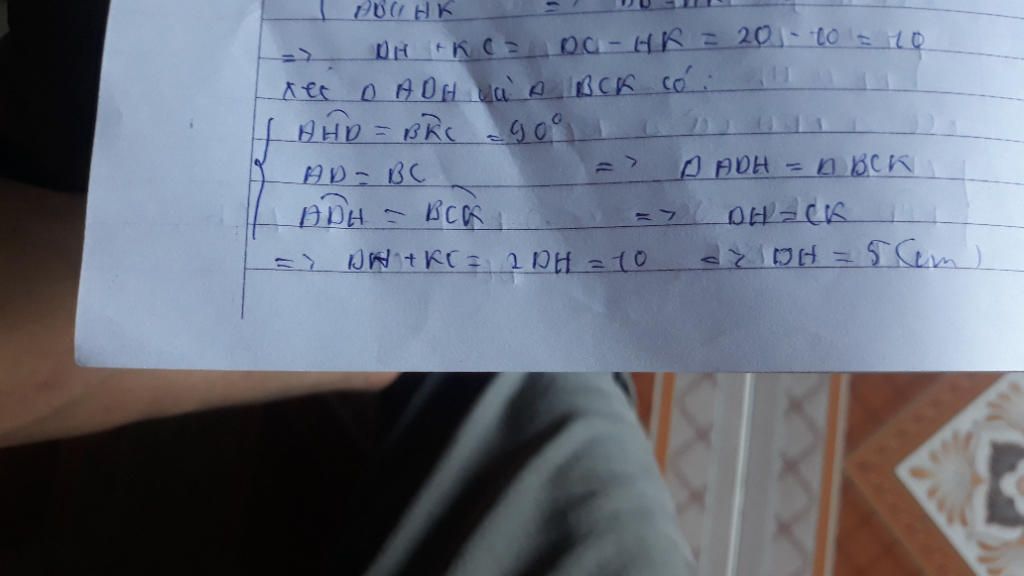 => DH + KC = DC - HK = 20 - 10 = 10
Xét Δ ADH và Δ BCK có:
AHD = BKC = 90°
AD = BC => Δ ADH = Δ BCK
ADH = BCK => DH = CK
=> DH + KC = 2DH = 10 => DH = 5 (cm)